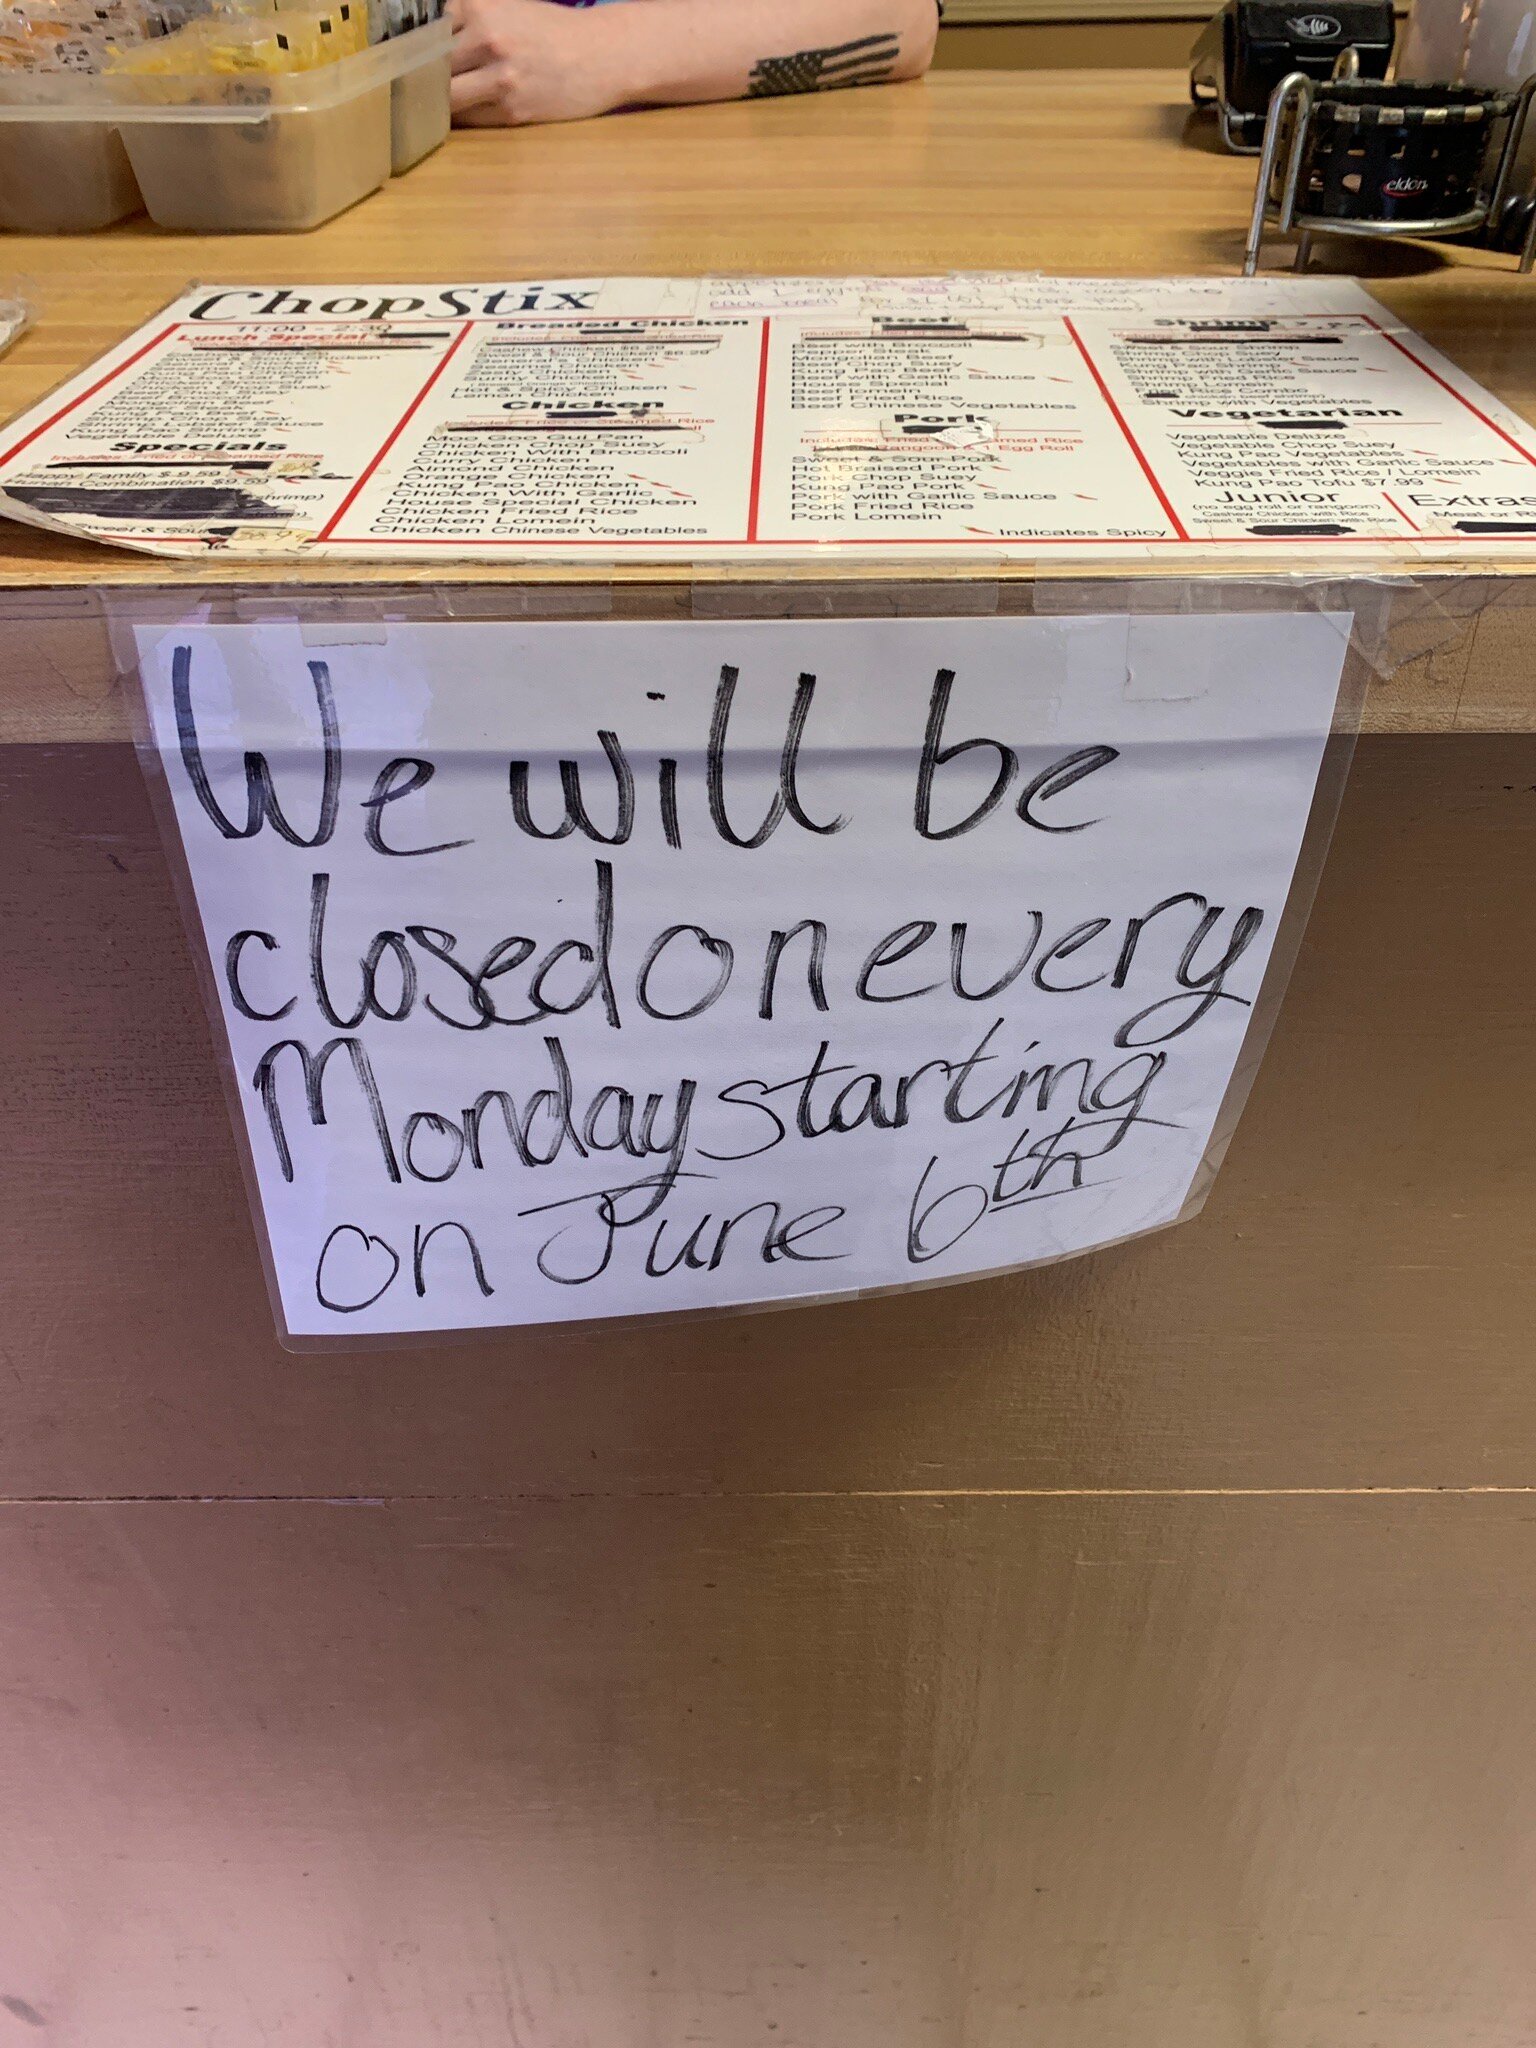 eldon
ChopStix
11:00 - 2:30
Lunch Special
Beef Broccoli
Pepper Steak
Shrimp Lobster Sauce
Kung Pao Shrimp
Specials
Includes: Fried or Steamed Rice
Happy Family $ 9.59
Hunan Combination $9.59
Shrimp)
Sweet & Sour
Breaded Chicken
Sweet & Sour Chicken $8.29
General's Chicken
Sesame Chicken
Hot & Spicy Chicken
Lemon Chicken
Chicken
Includes: Fried or Steamed Rice
Moo Goo Gui Pan
Chicken Chop Suey
Chicken With Broccoli
Curry Chicken
Almond Chicken
Orange Chicken
Kung Pao Chicken
Chicken With Garlic
House Special Chicken
Chicken Fried Rice
Chicken Lomein
Chicken Chinese Vegetables
Beef
Beef with Broccoli
Pepper Steak
Mongolian Beef
Beef Chop Suey
Kung Pao Beef
Beef with Garlic Sauce
House Special
Beef Lomein
Beef Fried Rice
Beef Chinese Vegetables
Pork
Includes: Fried Steamed Rice
Rangoon & Egg Roll
Sweet & Sour Pork
Hot Braised Pork
Pork Chop Suey
Kung Pao Pork
Pork with Garlic Sauce
Pork Fried Rice
Pork Lomein
Indicates Spicy
Shrimp
Shrimp Chop Suey
Kung Pao Shrimp
Shrimp Lomein
Shrimp with Vegetables
Vegetarian
Vegetable Deluxe
Vegetable Chop Suey
Kung Pao Vegetables
Vegetables with Garlic Sauce
Veggie Fried Rice / Lomein
Kung Pao Tofu $7.99
Junior
(no egg roll or rangoon)
Cashew Chicken with Rice
Sweet & Sour Chicken with Rice
Extras
Meat or
We will be
closed on every
Monday starting
on June 6th